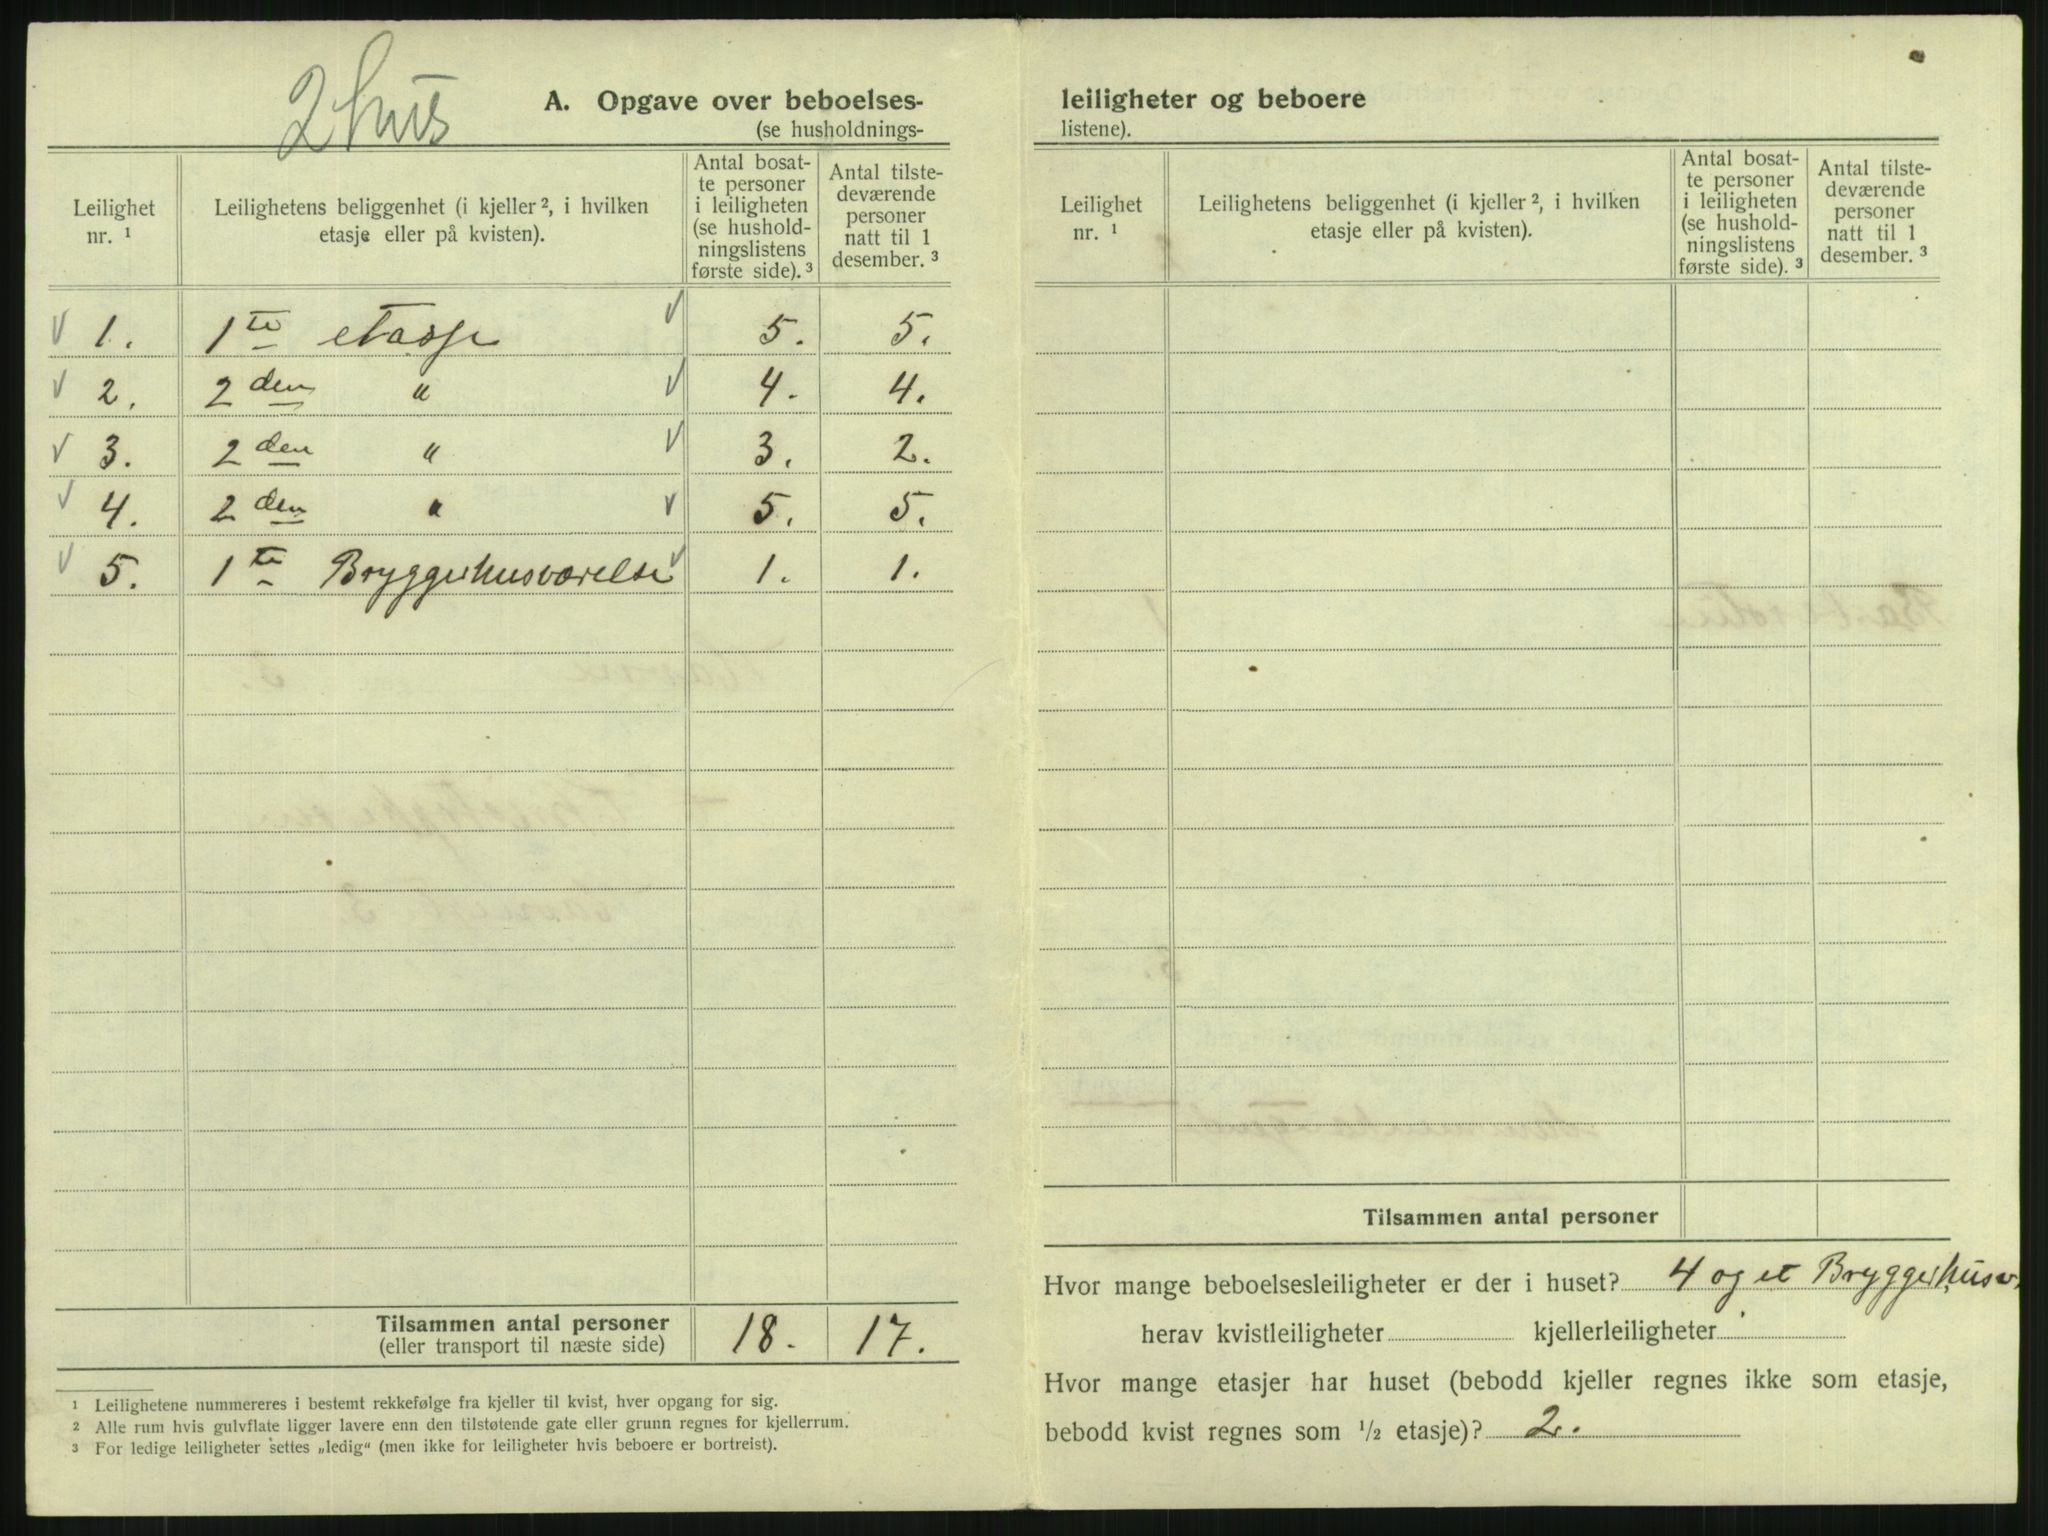 2 hus
A. Opgave over beboelses-
(se husholdnings-
Leilighet nr. 1
Leilighetens beliggenhet (i kjeller 2, i hvilken etasje eller på kvisten).
Antal bosat-te personer i leiligheten (se hushold-ningslistens første side). 3
Antal tilste-deværende personer natt til 1 desember. 3
1. 1te etasje 5. 5.
2. 2den " 4. 4.
3. 2den " 3. 2.
4. 2den " 5. 5.
5. 1te Bryggerhusværelse 1. 1.
Tilsammen antal personer 18. 17.
(eller transport til næste side)
1 Leilighetene nummereres i bestemt rekkefølge fra kjeller til kvist, hver opgang for sig.
2 Alle rum hvis gulvflate ligger lavere enn den tilstøtende gate eller grunn regnes for kjellerrum.
3 For ledige leiligheter settes „ledig" (men ikke for leiligheter hvis beboere er bortreist).
leiligheter og beboere
listene).
Leilighet nr. 1
Leilighetens beliggenhet (i kjeller 2, i hvilken etasje eller på kvisten).
Antal bosat-te personer i leiligheten (se hushold-ningslistens første side). 3
Antal tilste-deværende personer natt til 1 desember. 3
Tilsammen antal personer
Hvor mange beboelsesleiligheter er der i huset? 4 og et Bryggerhusv.
herav kvistleiligheter kjellerleiligheter
Hvor mange etasjer har huset (bebodd kjeller regnes ikke som etasje,
bebodd kvist regnes som 1/2 etasje)? 2.